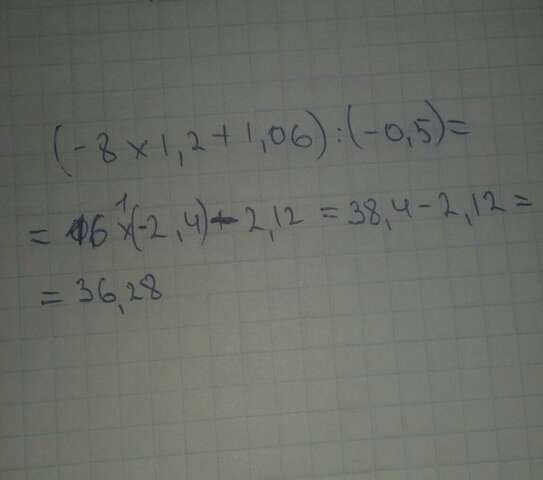 (-8 x 1,2 + 1,06) : (-0,5) =
= 16 x (-2,4) - 2,12 = 38,4 - 2,12 =
= 36,28